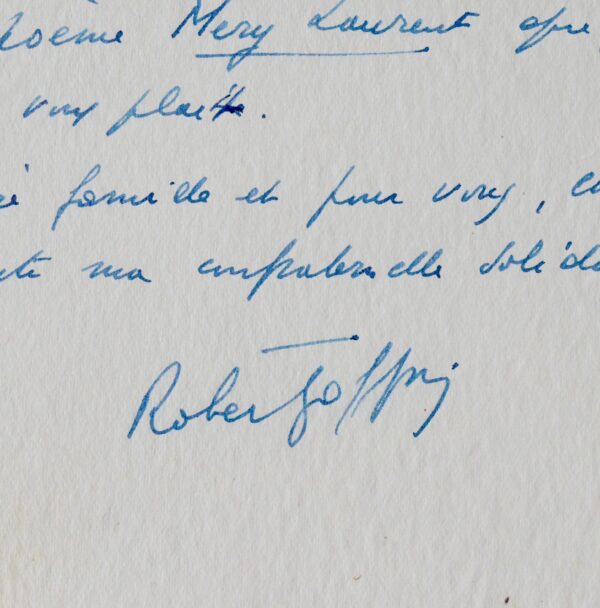 poème Mery Laurent que
vous plait.
et pour vous,
ma confraternelle solida
Robert Goffin